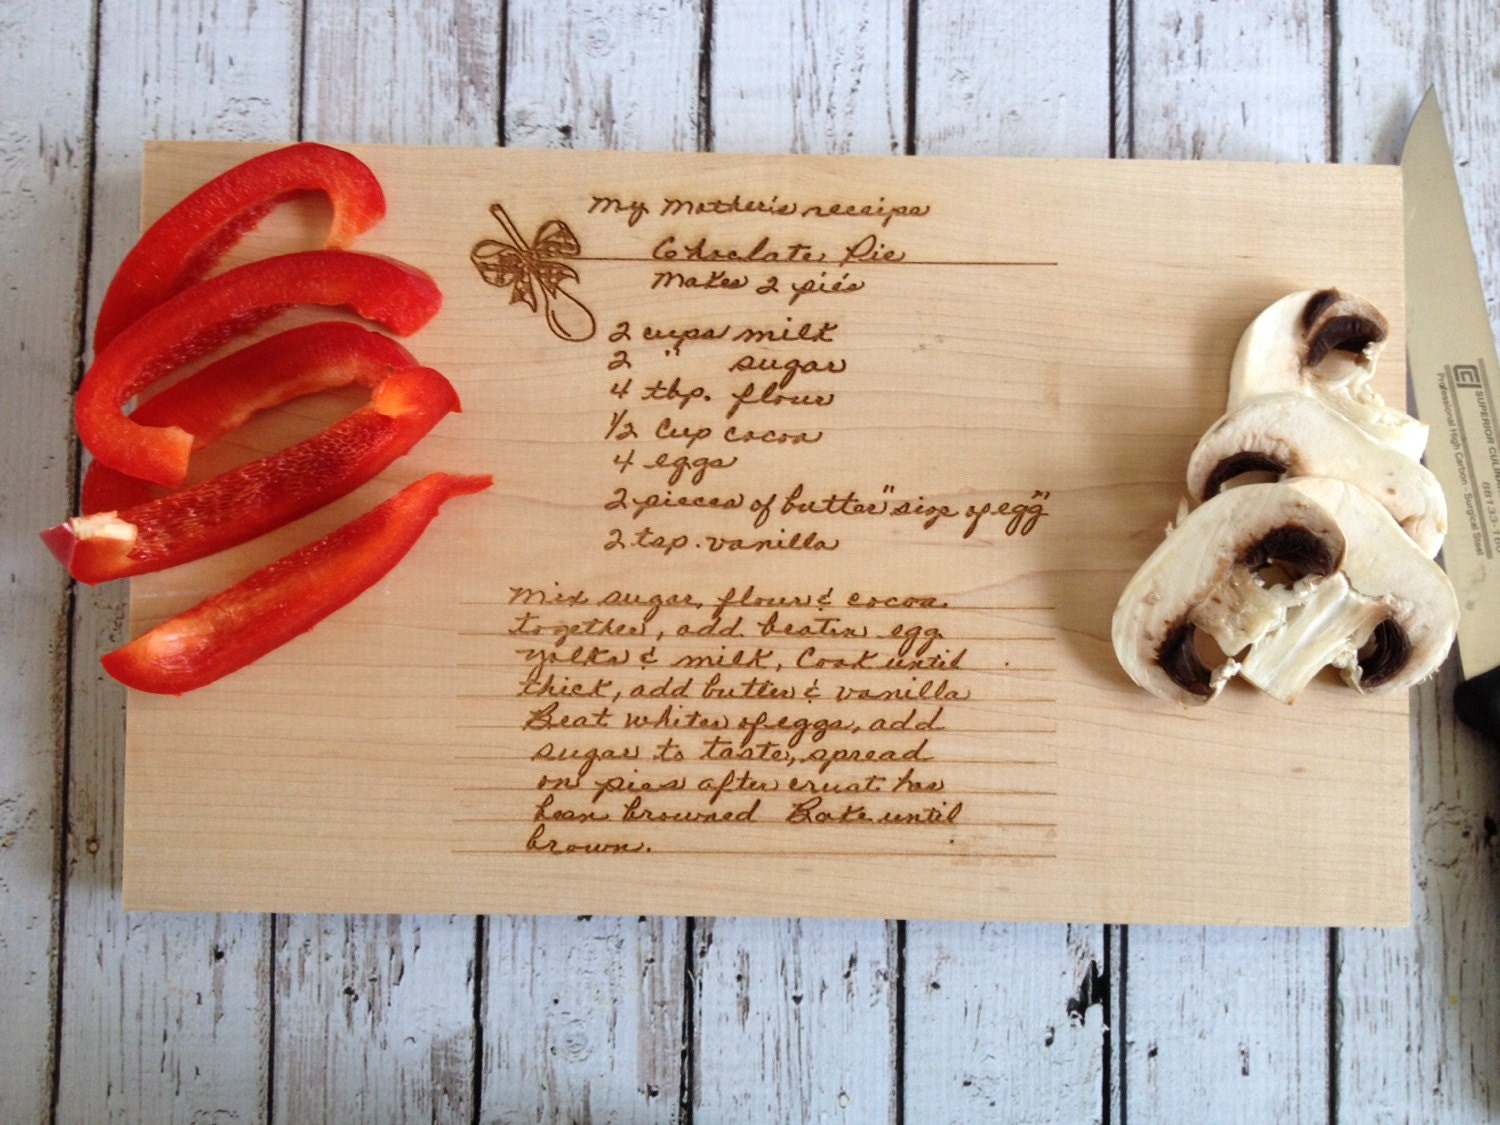 My Mother's receipe
Choclate Pie
Makes 2 pie's
2 cups milk
2 " sugar
4 tbp. flour
1/2 cup cocoa
4 eggs
2 pieces of butter "size of egg"
2 tsp. vanilla
Mix sugar, flour & cocoa
together, add beaten egg
yolks & milk, Cook until
thick, add butter & vanilla
Beat whites of eggs, add
sugar to taste, spread
on pies after crust has
been browned Bake until
brown.
SUPERIOR
Professional High Carbon, Surgical Steel